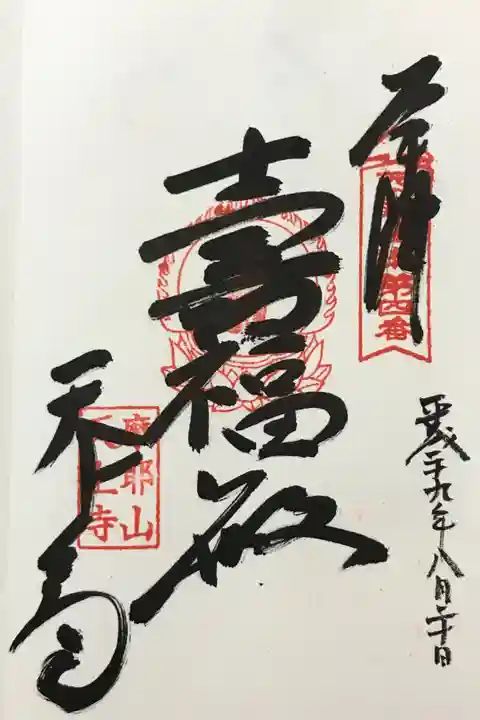 奉拝
第四番
平成二十九年八月二十日
壽福殿
摩耶山
天上寺
天上寺